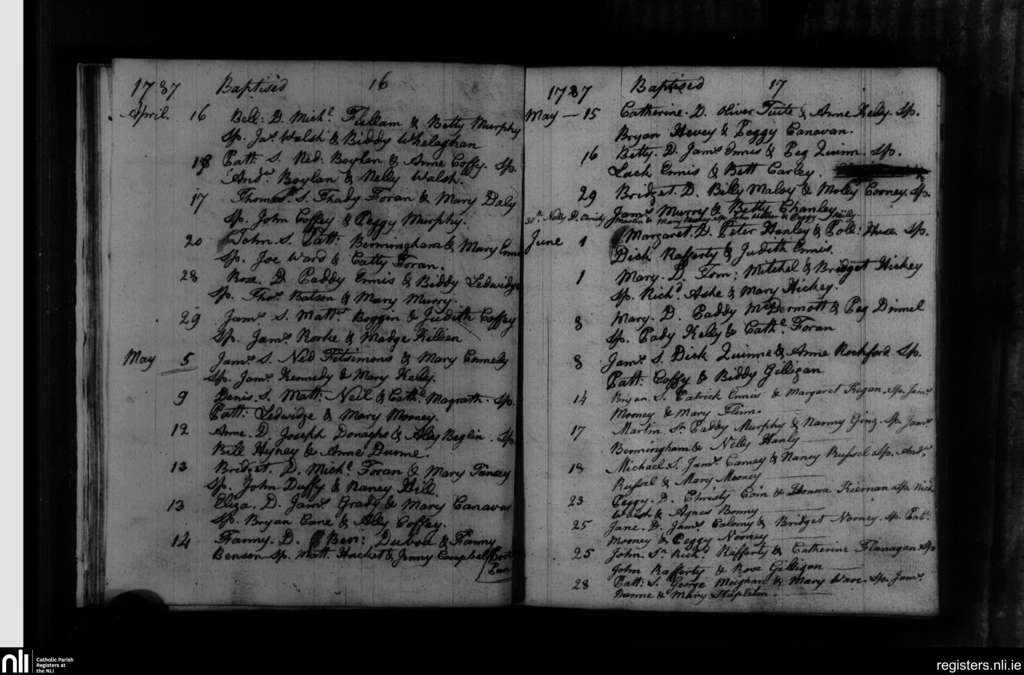 1787 Baptised 16
April 16 Bell: D. Mich.l Fullam & Betty Murphy
Sp. Ja.s Walsh & Biddy Whelaghan
18 Patt: S. Ned. Boylan & Anne Coffy. Sp.
And.w Boylan & Nelly Walsh.
17 Thomas. S. Thady Foran & Mary Daly
Sp. John Coffey & Peggy Murphy.
20 John. S. Patt: Bermingham & Mary Ennis
Sp. Joe Ward & Catty Foran.
28 Rose D. Paddy Ennis & Biddy Ledwidge
Sp. Tho.s Batson & Mary Murry.
29 Jam.s S. Matt.w Boggin & Judith Coffey
Sp. Jam.s Rorke & Madge Killeen
May 5 Jam.s S. Ned Fitsimons & Mary Connely
Sp. Jam.s Kennedy & Mary Kelly.
9 Denis S. Matt: Neil & Cath: Magrath. Sp.
Patt: Ledwidge & Mary Mooney.
12 Anne. D. Joseph Donagho & Aley Beglin. Sp.
Bill Hyney & Anne Dunne.
13 Bridget. D. Mich.l Foran & Mary
Sp. John Duffy & Nancy Hill.
13 Eliza. D. Jam.s Grady & Mary Canavan
Sp. Bryan Cane & Aley Coffey.
14 Fanny. D. Ben: & Fanny
Benson Sp. Matt. Hacket & Jenny Campbel
1787 Baptised 17
May — 15 Catherine. D. Oliver Tuite & Anne Kely. Sp.
Bryan Hevey & Peggy Canavan.
16 Betty. D. Jam.s Ennis & Peg Quinn. Sp.
Lack Ennis & Bett Carley.
29 Bridget. D. Billy Maloy & Molly Cooney. Sp.
Jam.s Murry & Betty Chanley
30.th Nelly D. Christy
June 1 Margaret D. Peter Hanley & Poll: Sp.
Dick Rafferty & Judith Ennis.
1 Mary. D. Tom: Mitchel & Bridget Hickey
Sp. Rich.d Ashe & Mary Hickey.
8 Mary. D. Paddy McDermott & Peg Dinnel
Sp. Pady Kelly & Cath.e Foran
8 Jam.s S. Dick Quinne & Anne Rochford Sp.
Patt: Coffy & Biddy Gilligan
14 Bryan. S. Patrick Ennis & Margaret Kegan. Sp. Jam.s
Mooney & Mary Flinn.
17 Martin S.n Paddy Murphy & Nanny Ginz. Sp. Jam.s
Bermingham & Nelly Hanly
18 Michael S. Jam.s Carney & Nancy Russel Sp. And.w
Russel & Mary Mooney
23 Peggy. D. Christy Coin & Honora Kiernan Sp. Nick
Walsh & Agnes Bonny
25 Jane. D. Jam.s & Bridget Nooney. Sp. Pat.
Mooney & Peggy Nooney
25 John S.n Rich.d Rafferty & Catherine Flanagan Sp
John Rafferty & Rose Gilligan
28 Patt: S. George Meighan & Mary Ware Sp. Jam.s
& Mary Stapleton.
nli
Catholic Parish
Registers at
the NLI
registers.nli.ie